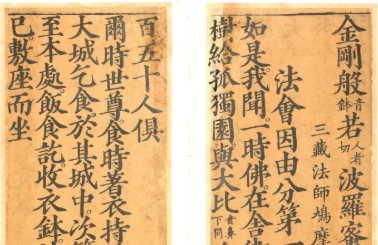 金剛般音鉢若人者切波羅蜜
三藏法師鳩摩
法會因由分第
如是我聞一時佛在舍
樹給孤獨園與大比音鼻下同
百五十人俱
爾時世尊食時著衣持
大城乞食於其城中次第
至本處飯食訖收衣鉢
已敷座而坐